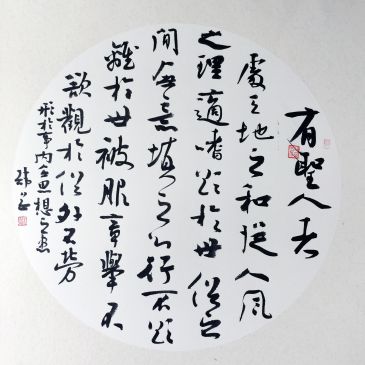 有聖人者
處天地之和從八風
之理適嗜欲於世俗之
間無恚嗔之心行不欲
離於世被服章舉不
欲觀於俗外不勞
形於事內無思想之患